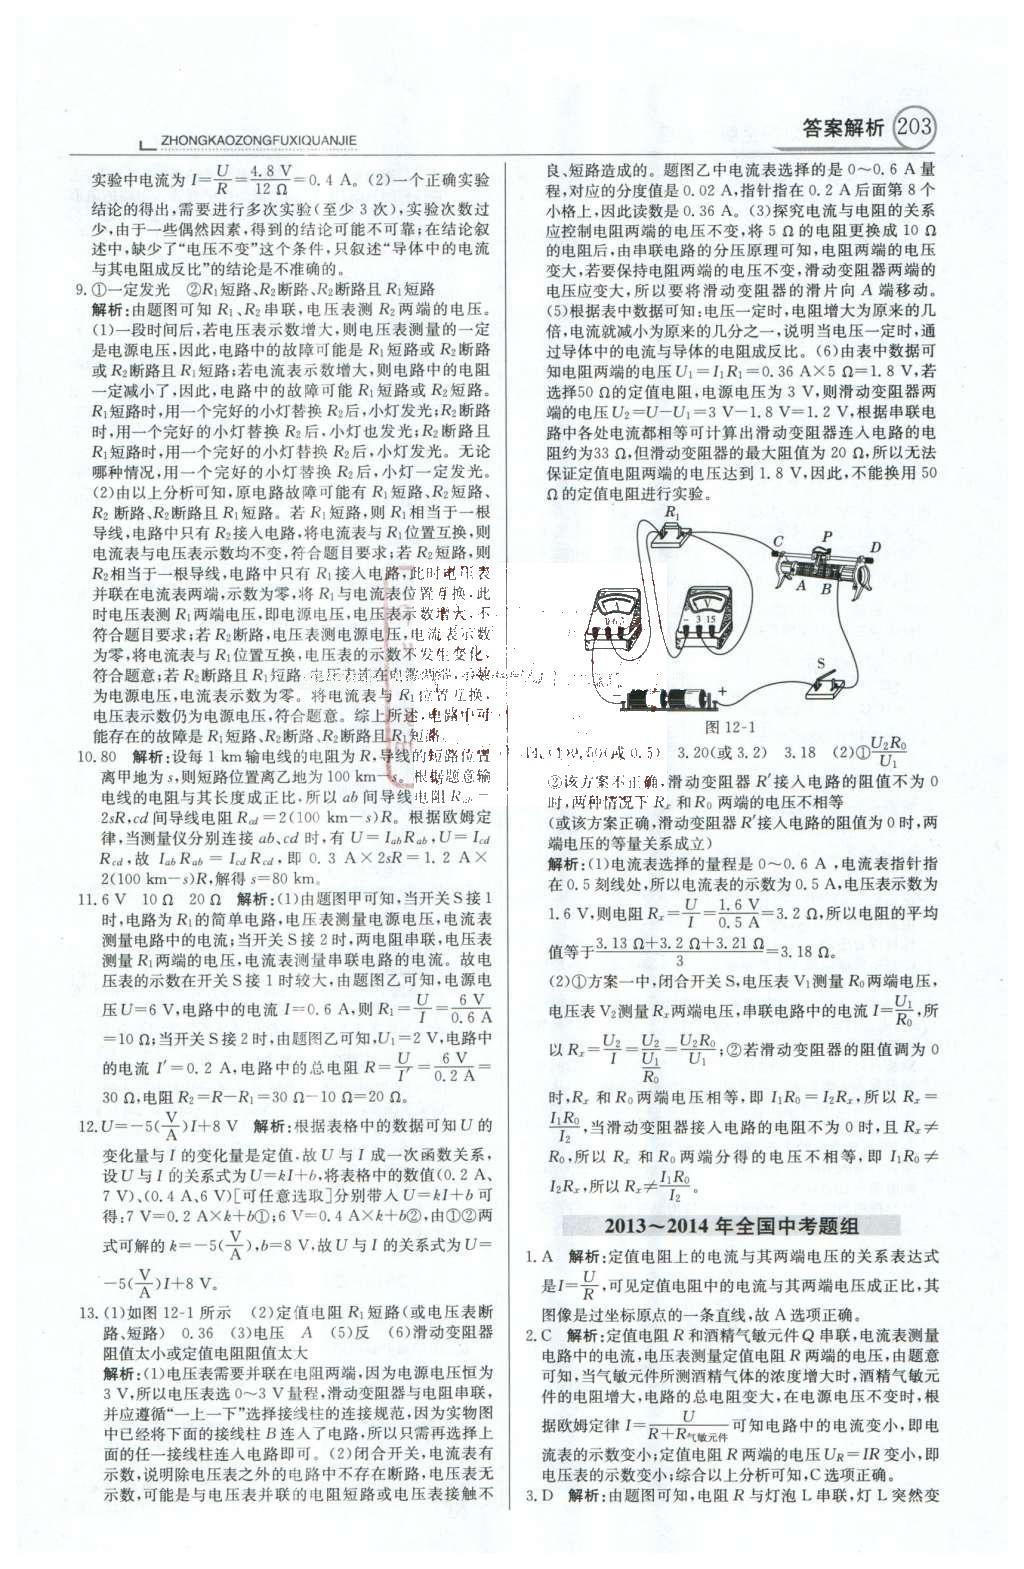 ZHONGKAOZONGFUXIQUANJIE
答案解析 203
实验中电流为 I=U/R=4.8 V/12 Ω=0.4 A。(2)一个正确实验
结论的得出,需要进行多次实验(至少 3 次),实验次数过
少,由于一些偶然因素,得到的结论可能不可靠;在结论叙
述中,缺少了“电压不变”这个条件,只叙述“导体中的电流
与其电阻成反比”的结论是不准确的。
9.①一定发光 ②R₁短路、R₂断路、R₂断路且 R₁短路
解析:由题图可知 R₁、R₂串联,电压表测 R₂两端的电压。
(1)一段时间后,若电压表示数增大,则电压表测量的一定
是电源电压,因此,电路中的故障可能是 R₁短路或 R₂断路
或 R₂断路且 R₁短路;若电流表示数增大,则电路中的电阻
一定减小了,因此,电路中的故障可能 R₁短路或 R₂短路。
R₁短路时,用一个完好的小灯替换 R₂后,小灯发光;R₂断路
时,用一个完好的小灯替换 R₂后,小灯也发光;R₂断路且
R₁短路时,用一个完好的小灯替换 R₂后,小灯发光。无论
哪种情况,用一个完好的小灯替换 R₂后,小灯一定发光。
(2)由以上分析可知,原电路故障可能有 R₁短路、R₂短路、
R₂ 断路、R₂断路且 R₁短路。若 R₁短路,则 R₁相当于一根
导线,电路中只有 R₂接入电路,将电流表与 R₁位置互换,则
电流表与电压表示数均不变,符合题目要求;若 R₂短路,则
R₂相当于一根导线,电路中只有 R₁接入电路,此时电压表
并联在电流表两端,示数为零,将 R₁与电流表位置互换,此
时电压表测 R₁两端电压,即电源电压,电压表示数增大,不
符合题目要求;若 R₂断路,电压表测电源电压,电流表示数
为零,将电流表与 R₁位置互换,电压表的示数不发生变化,
符合题意;若 R₂断路且 R₁短路,电压表串联在电源两端,示数
为电源电压,电流表示数为零。将电流表与 R₁位置互换,
电压表示数仍为电源电压,符合题意。综上所述,电路中可
能存在的故障是 R₁短路、R₂断路、R₂断路且 R₁短路。
10.80 解析:设每 1 km 输电线的电阻为 R,导线的短路位置
离甲地为 s,则短路位置离乙地为 100 km-s。根据题意输
电线的电阻与其长度成正比,所以 ab 间导线电阻 Rab=
2sR,cd 间导线电阻 Rcd=2(100 km-s)R。根据欧姆定
律,当测量仪分别连接 ab、cd 时,有 U=IabRab,U=Icd
Rcd,故 IabRab=IcdRcd,即 0.3 A×2sR=1.2 A×
2(100 km-s)R,解得 s=80 km。
11.6 V 10 Ω 20 Ω 解析:(1)由题图甲可知,当开关 S 接 1
时,电路为 R₁的简单电路,电压表测量电源电压,电流表
测量电路中的电流;当开关 S 接 2 时,两电阻串联,电压表
测量 R₁两端的电压,电流表测量串联电路的电流。故电
压表的示数在开关 S 接 1 时较大,由题图乙可知,电源电
压U=6 V,电路中的电流 I=0.6 A,则 R₁=U/I=6 V/0.6 A
=10 Ω;当开关 S 接 2 时,由题图乙可知,U₁=2 V,电路中
的电流 I′=0.2 A,电路中的总电阻 R=U/I′=6 V/0.2 A=
30 Ω,电阻 R₂=R-R₁=30 Ω-10 Ω=20 Ω。
12.U=-5(V/A)I+8 V 解析:根据表格中的数据可知 U 的
变化量与 I 的变化量是定值,故 U 与 I 成一次函数关系,
设 U 与 I 的关系式为 U=kI+b,将表格中的数值(0.2 A、
7 V)、(0.4 A、6 V)[可任意选取]分别带入 U=kI+b 可
得:7 V=0.2 A×k+b①;6 V=0.4 A×k+b②,由①②两
式可解的 k=-5(V/A),b=8 V,故 U 与 I 的关系式为 U=
-5(V/A)I+8 V。
13.(1)如图 12-1 所示 (2)定值电阻 R₁短路(或电压表断
路、短路) 0.36 (3)电压 A (5)反 (6)滑动变阻器
阻值太小或定值电阻阻值太大
解析:(1)电压表需要并联在电阻两端,因为电源电压恒为
3 V,所以电压表选 0~3 V 量程,滑动变阻器与电阻串联,
并应遵循“一上一下”选择接线柱的连接规范,因为实物图
中已经将下面的接线柱 B 连入了电路,所以只需再选择上
面的任一接线柱连入电路即可。(2)闭合开关,电流表有
示数,说明除电压表之外的电路中不存在断路,电压表无
示数,可能是与电压表并联的电阻短路或电压表接触不
良、短路造成的。题图乙中电流表选择的是 0~0.6 A 量
程,对应的分度值是 0.02 A,指针指在 0.2 A 后面第 8 个
小格上,因此读数是 0.36 A。(3)探究电流与电阻的关系
应控制电阻两端的电压不变,将 5 Ω 的电阻更换成 10 Ω
的电阻后,由串联电路的分压原理可知,电阻两端的电压
变大,若要保持电阻两端的电压不变,滑动变阻器两端的
电压应变大,所以要将滑动变阻器的滑片向 A 端移动。
(5)根据表中数据可知:电压一定时,电阻增大为原来的几
倍,电流就减小为原来的几分之一,说明当电压一定时,通
过导体中的电流与导体的电阻成反比。(6)由表中数据可
知电阻两端的电压 U₁=I₁R₁=0.36 A×5 Ω=1.8 V,若
选择50 Ω的定值电阻,电源电压为 3 V,则滑动变阻器两
端的电压 U₂=U-U₁=3 V-1.8 V=1.2 V,根据串联电
路中各处电流都相等可计算出滑动变阻器连入电路的电
阻约为33 Ω,但滑动变阻器的最大阻值为 20 Ω,所以无法
保证定值电阻两端的电压达到 1.8 V,因此,不能换用 50
Ω 的定值电阻进行实验。
R₁
C P D
A B
A
V
- 3 15
S
- +
图 12-1
0.50(或 0.5) 3.20(或 3.2) 3.18 (2)①U₂R₀/U₁
②该方案不正确,滑动变阻器 R′接入电路的阻值不为 0
时,两种情况下 Rₓ 和 R₀ 两端的电压不相等
(或该方案正确,滑动变阻器 R′接入电路的阻值为 0 时,两
端电压的等量关系成立)
解析:(1)电流表选择的量程是 0~0.6 A ,电流表指针指
在 0.5 刻线处,所以电流表的示数为 0.5 A,电压表示数为
1.6 V,则电阻 Rₓ=U/I=1.6 V/0.5 A=3.2 Ω,所以电阻的平均
值等于(3.13 Ω+3.2 Ω+3.21 Ω)/3=3.18 Ω。
(2)①方案一中,闭合开关 S,电压表 V₁测量 R₀两端电压,
电压表 V₂测量 Rₓ两端电压,串联电路中的电流 I=U₁/R₀,所
以 Rₓ=U₂/I=U₂/(U₁/R₀)=U₂R₀/U₁;②若滑动变阻器的阻值调为 0
时,Rₓ 和 R₀ 两端电压相等,即 I₁R₀=I₂Rₓ,所以 Rₓ=
I₁R₀/I₂,当滑动变阻器接入电路的电阻不为 0 时,且 Rₓ≠
R₀,所以 Rₓ 和 R₀ 两端分得的电压不相等,即 I₁R₀≠
I₂Rₓ,所以 Rₓ≠I₁R₀/I₂。
2013~2014 年全国中考题组
1. A 解析:定值电阻上的电流与其两端电压的关系表达式
是I=U/R,可见定值电阻中的电流与其两端电压成正比,其
图像是过坐标原点的一条直线,故 A 选项正确。
2. C 解析:定值电阻 R 和酒精气敏元件 Q 串联,电流表测量
电路中的电流,电压表测量定值电阻 R 两端的电压,由题意
可知,当气敏元件所测酒精气体的浓度增大时,酒精气敏元
件的电阻增大,电路的总电阻变大,在电源电压不变时,根
据欧姆定律 I=U/(R+R气敏元件)可知电路中的电流变小,即电
流表的示数变小;定值电阻 R 两端的电压 UR=IR变小,即
电压表的示数变小;综合以上分析可知,C选项正确。
3. D 解析:由题图可知,电阻 R 与灯泡 L 串联,灯 L 突然变